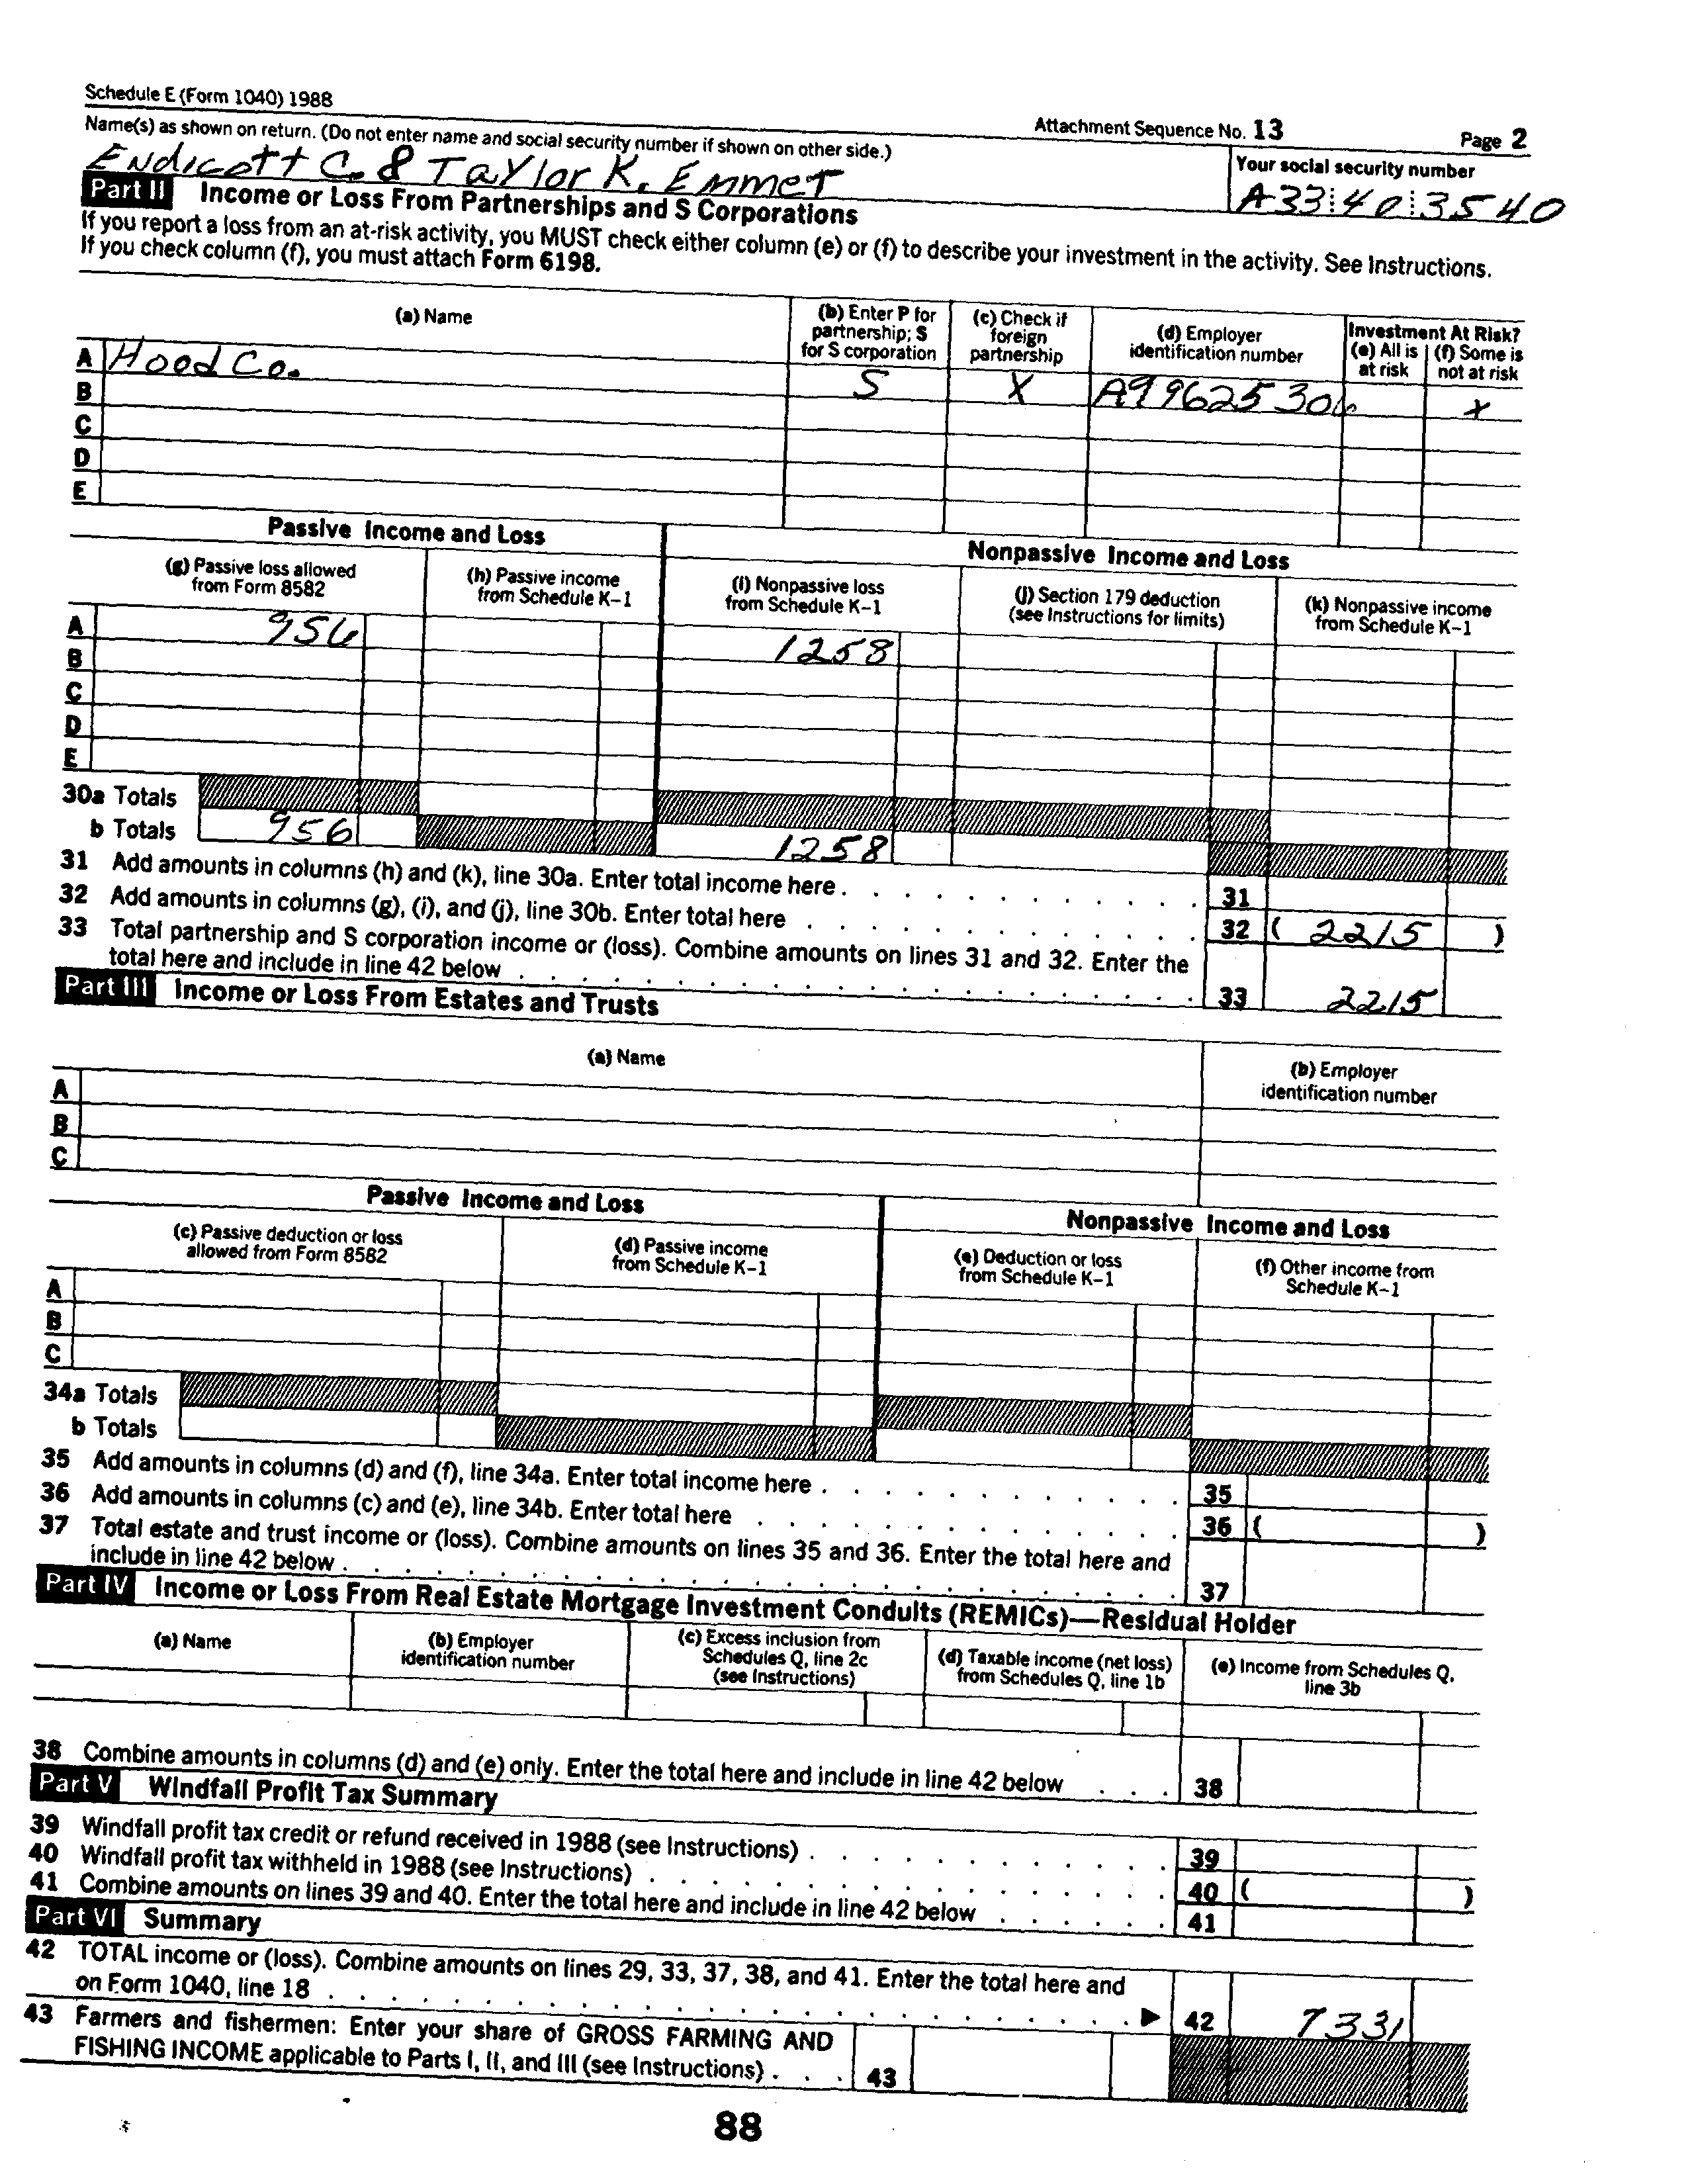 Schedule E (Form 1040) 1988
Attachment Sequence No. 13
Page 2
Name(s) as shown on return. (Do not enter name and social security number if shown on other side.)
Your social security number
Endicott C. & Taylor K. Emmet
A33 40 3540
Part II Income or Loss From Partnerships and S Corporations
If you report a loss from an at-risk activity, you MUST check either column (e) or (f) to describe your investment in the activity. See Instructions.
If you check column (f), you must attach Form 6198.
(a) Name
(b) Enter P for partnership; S for S corporation
(c) Check if foreign partnership
(d) Employer identification number
Investment At Risk?
(e) All is at risk
(f) Some is not at risk
A Hood Co. S X A99625306 x
B
C
D
E
Passive Income and Loss
Nonpassive Income and Loss
(g) Passive loss allowed from Form 8582
(h) Passive income from Schedule K-1
(i) Nonpassive loss from Schedule K-1
(j) Section 179 deduction (see Instructions for limits)
(k) Nonpassive income from Schedule K-1
A 956 1258
B
C
D
E
30a Totals
b Totals 956 1258
31 Add amounts in columns (h) and (k), line 30a. Enter total income here . . . . . . . . . . . 31
32 Add amounts in columns (g), (i), and (j), line 30b. Enter total here . . . . . . . . . . . . 32 ( 2215 )
33 Total partnership and S corporation income or (loss). Combine amounts on lines 31 and 32. Enter the
total here and include in line 42 below . . . . . . . . . . . . . . . . . . . . . 33 2215
Part III Income or Loss From Estates and Trusts
(a) Name
(b) Employer identification number
A
B
C
Passive Income and Loss
Nonpassive Income and Loss
(c) Passive deduction or loss allowed from Form 8582
(d) Passive income from Schedule K-1
(e) Deduction or loss from Schedule K-1
(f) Other income from Schedule K-1
A
B
C
34a Totals
b Totals
35 Add amounts in columns (d) and (f), line 34a. Enter total income here . . . . . . . . . . . 35
36 Add amounts in columns (c) and (e), line 34b. Enter total here . . . . . . . . . . . . . 36 ( )
37 Total estate and trust income or (loss). Combine amounts on lines 35 and 36. Enter the total here and
include in line 42 below . . . . . . . . . . . . . . . . . . . . . . . . . . 37
Part IV Income or Loss From Real Estate Mortgage Investment Conduits (REMICs)—Residual Holder
(a) Name
(b) Employer identification number
(c) Excess inclusion from Schedules Q, line 2c (see Instructions)
(d) Taxable income (net loss) from Schedules Q, line 1b
(e) Income from Schedules Q, line 3b
38 Combine amounts in columns (d) and (e) only. Enter the total here and include in line 42 below . . . 38
Part V Windfall Profit Tax Summary
39 Windfall profit tax credit or refund received in 1988 (see Instructions) . . . . . . . . . . . 39
40 Windfall profit tax withheld in 1988 (see Instructions) . . . . . . . . . . . . . . . . 40 ( )
41 Combine amounts on lines 39 and 40. Enter the total here and include in line 42 below . . . . . . 41
Part VI Summary
42 TOTAL income or (loss). Combine amounts on lines 29, 33, 37, 38, and 41. Enter the total here and
on Form 1040, line 18 . . . . . . . . . . . . . . . . . . . . . . . . . ▶ 42 7331
43 Farmers and fishermen: Enter your share of GROSS FARMING AND
FISHING INCOME applicable to Parts I, II, and III (see Instructions) . . . 43
88